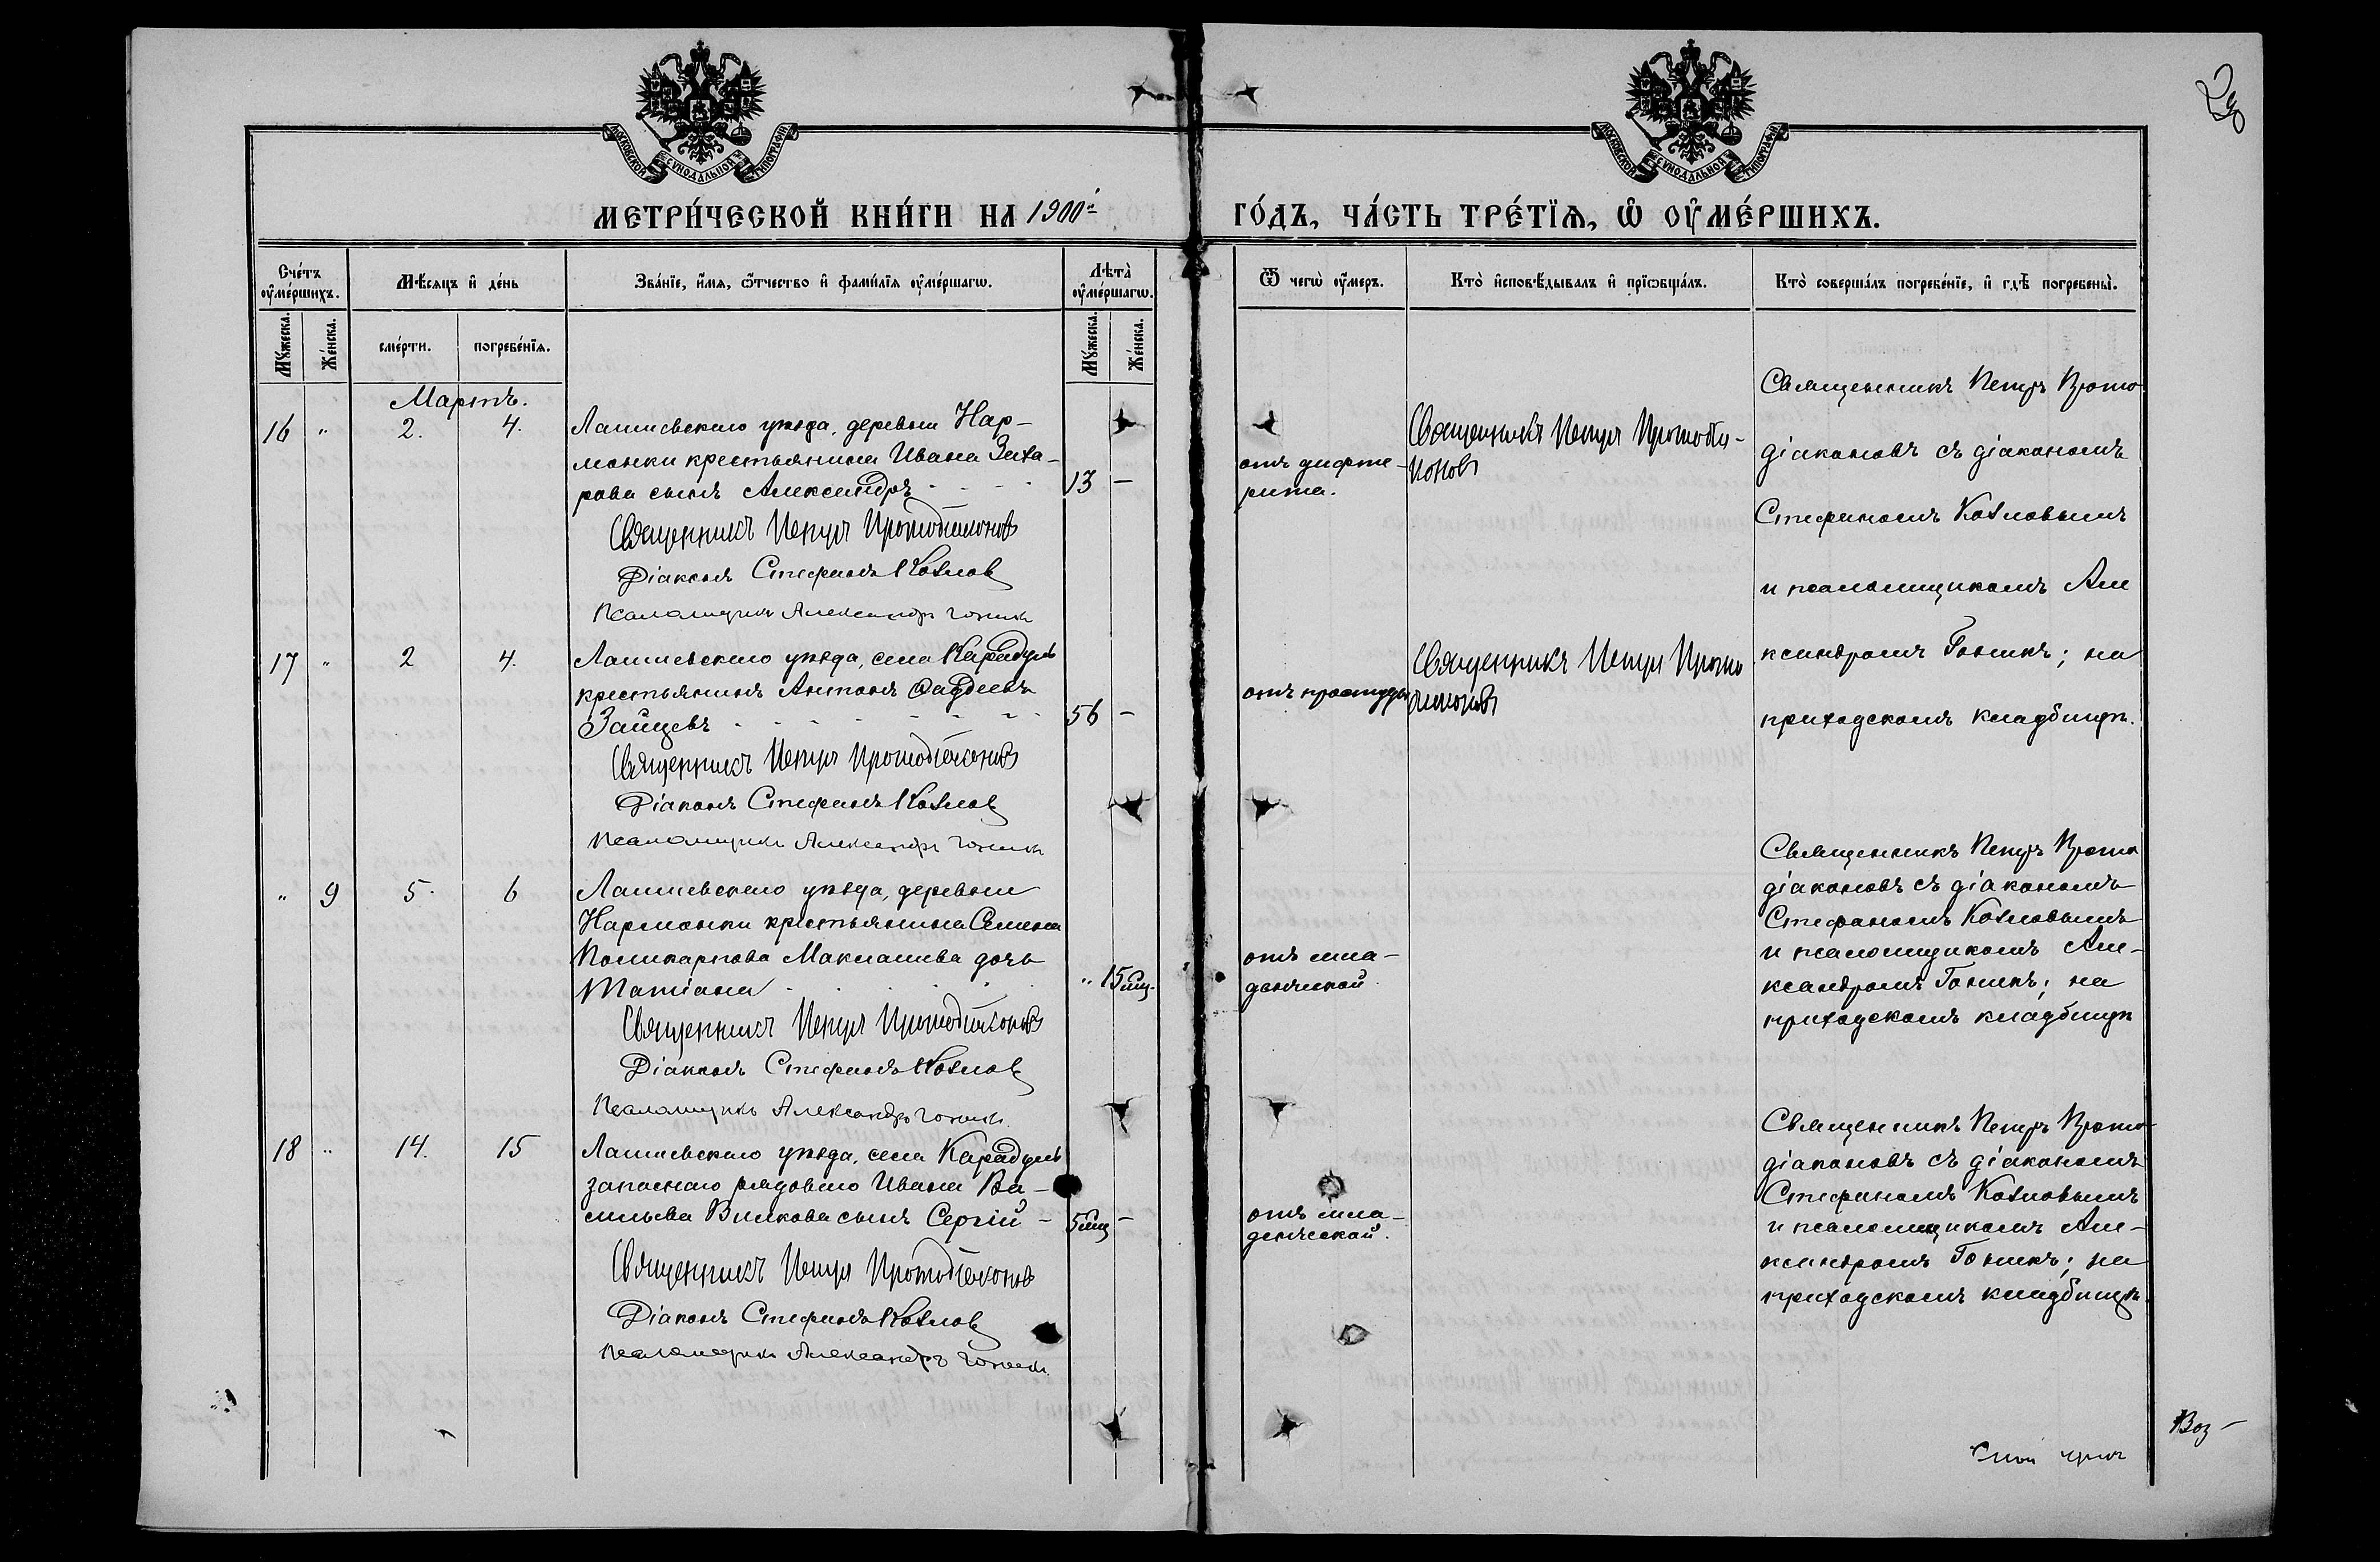 МОСКОВСКОЙ СѴНОДАЛЬНОЙ ТИПОГРАФІИ
МОСКОВСКОЙ СѴНОДАЛЬНОЙ ТИПОГРАФІИ
МЕТРИ́ЧЕСКОЙ КНИ́ГИ НА 1900й
ГО́ДЪ, ЧА́СТЬ ТРЕ́ТЇѦ, Ѽ ОУ҆МЕ́РШИХЪ.
Сче́тъ оу҆ме́ршихъ.
Мѣ́сяцъ и҆ де́нь
Зва́нїе, и҆́мя, ѻ҆́тчество и҆ фами́лїя оу҆ме́ршагѡ.
Лѣта̀ оу҆ме́ршагѡ.
Ѿ чегѡ̀ оу҆́меръ.
Кто̀ и҆сповѣ́дывалъ и҆ прїѡбща́лъ.
Кто̀ соверша́лъ погребе́нїе, и҆ гдѣ̀ погребены̀.
Мꙋ́жеска.
Же́нска.
сме́рти.
погребе́нїя.
Мꙋ́жеска.
Же́нска.
Мартъ.
16 " 2. 4.
Лаишевскаго уѣзда, деревни Нар-
монки крестьянина Ивана Заха-
рова сынъ Александръ 13 -
Священникъ Петръ Протодіаконовъ
Діаконъ Стефанъ Козлов
Псаломщикъ Александръ Гоникъ
отъ дифте-
рита.
Священникъ Петръ Протодіа-
коновъ
Священникъ Петръ Прото
діаконовъ съ діакономъ
Стефаномъ Козловымъ
и псаломщикомъ Але
ксандромъ Гоникъ; на
приходскомъ кладбищѣ.
17 " 2 4.
Лаишевскаго уѣзда, села Карадуль
крестьянинъ Антонъ Ѳаддеевъ
Зайцевъ 56 -
Священникъ Петръ Протодіаконовъ
Діаконъ Стефанъ Козлов
Псаломщикъ Александръ Гоникъ
отъ простуды
Священникъ Петръ Прото
діаконовъ
" 9 5. 6
Лаишевскаго уѣзда, деревни
Нармонки крестьянина Семена
Поликарпова Максимова дочь
Татіана " 15 мц.
Священникъ Петръ Протодіаконовъ
Діаконъ Стефанъ Козлов
Псаломщикъ Александръ Гоникъ
отъ мла-
денческой.
Священникъ Петръ Прото
діаконовъ съ діакономъ
Стефаномъ Козловымъ
и псаломщикомъ Але-
ксандромъ Гоникъ; на
приходскомъ кладбищѣ
18 " 14. 15
Лаишевскаго уѣзда, села Карадуль
запаснаго рядоваго Ивана Ва-
сильева Вилкова сынъ Сергій - 5 мц -
Священникъ Петръ Протодіаконовъ
Діаконъ Стефанъ Козлов
Псаломщикъ Александръ Гоникъ
отъ мла-
денческой.
Священникъ Петръ Прото-
діаконовъ съ діакономъ
Стефаномъ Козловымъ
и псаломщикомъ Але-
ксандромъ Гоникъ; на
приходскомъ кладбищѣ.
Воз-